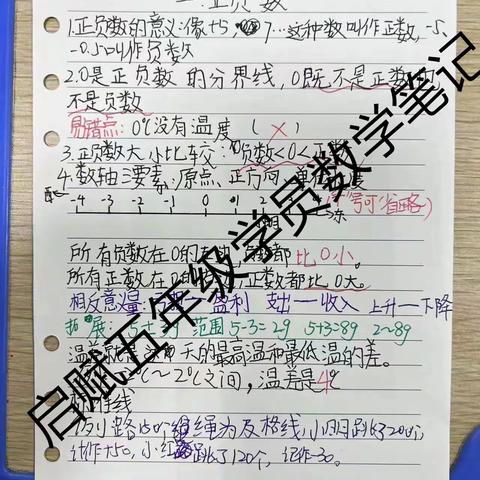 一.正负数
1.正负数的意义:像+5, 7…这种数叫作正数,-5、
-0.5叫作负数
2.0是正负数的分界线,0既不是正数
不是负数
易错点:0℃没有温度(×)
3.正负数大小比较:负数<0<正数
4.数轴三要素:原点、正方向、单
-4 -3 -2 -1 0 1 2
东
号可省略)
所有负数在0的 都比0小。
所有正数在0的 正数都比0大。
相反意义量 盈利 支出—收入 上升—下降
拓展: 范围 5-3=29 5+3=89 2~89
温差就是 天的最高温和最低温的差。
℃~2℃之间,温差是4℃
标准线
路150个 绳为及格线,小明跳了200个,
记作+50,小红跳了120个,记作-30。
启赋五年级学员数学笔记